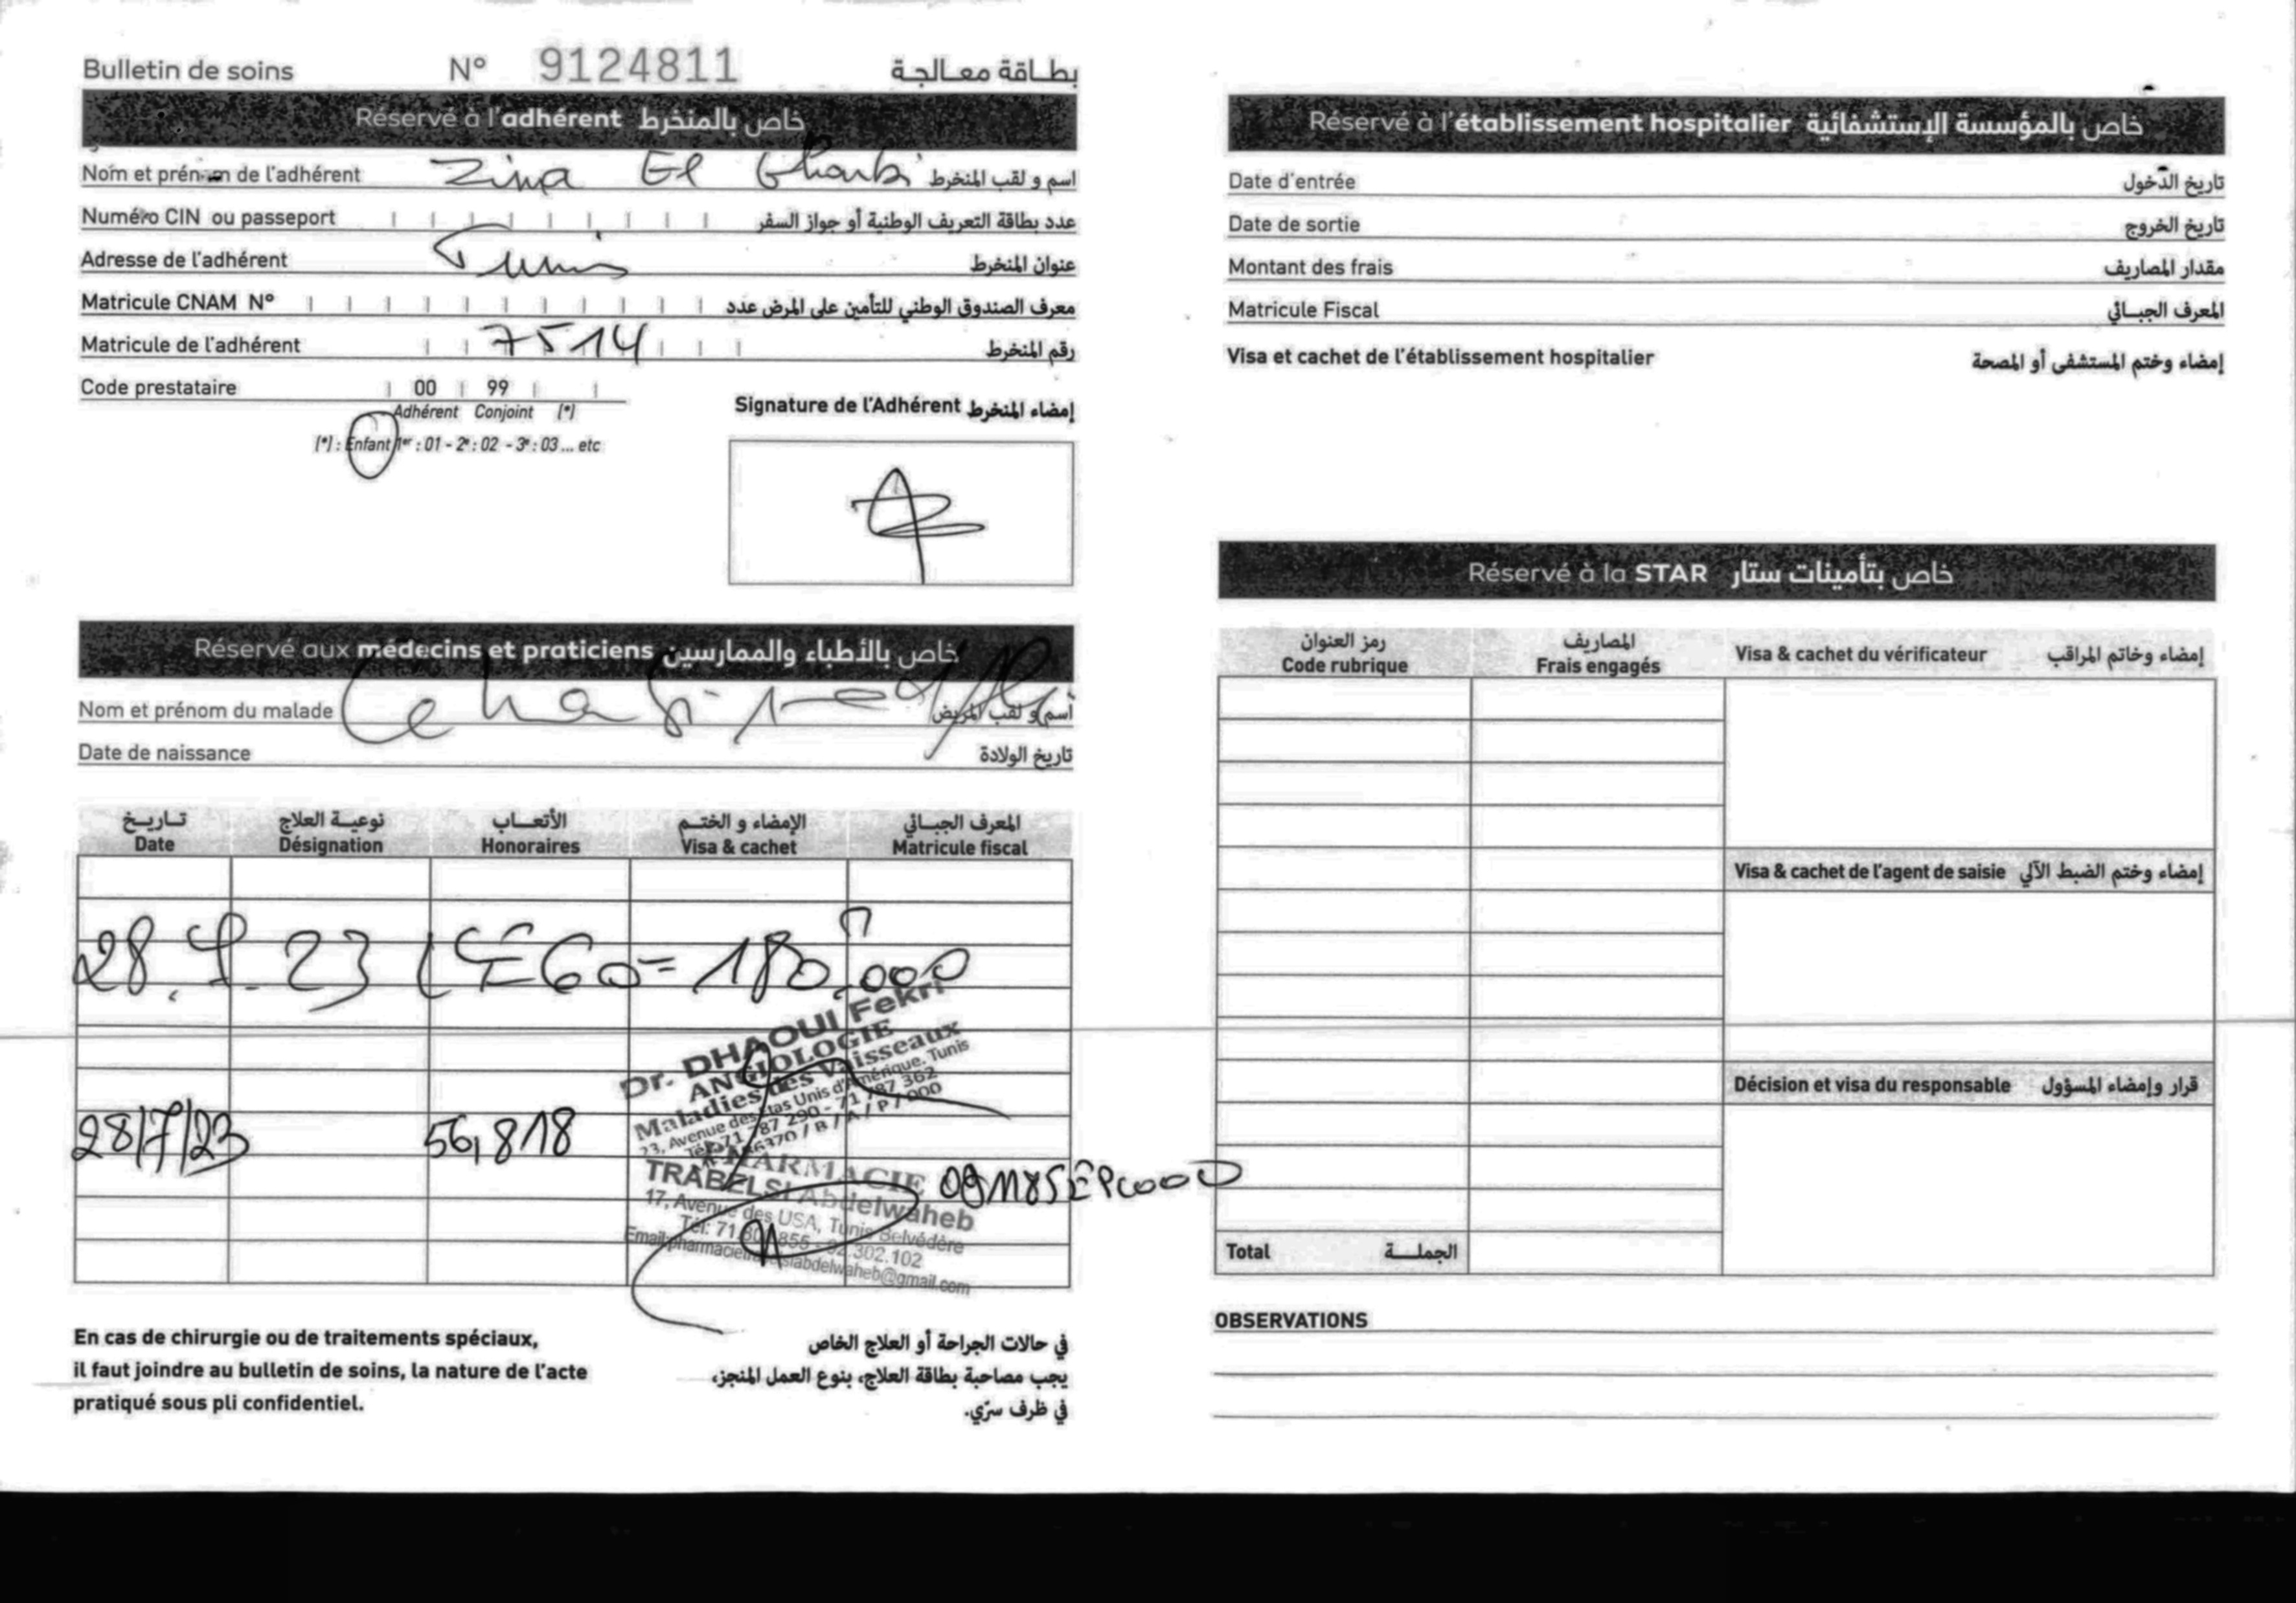 Bulletin de soins N° 9124811 بطاقة معالجة
Réservé à l'adhérent خاص بالمنخرط
Nom et prénom de l'adhérent Zina El Gharbi اسم و لقب المنخرط
Numéro CIN ou passeport عدد بطاقة التعريف الوطنية أو جواز السفر
Adresse de l'adhérent Tunis عنوان المنخرط
Matricule CNAM N° معرف الصندوق الوطني للتأمين على المرض عدد
Matricule de l'adhérent 7514 رقم المنخرط
Code prestataire 00 99
Adhérent Conjoint (*)
(*) : Enfant 1er : 01 - 2e : 02 - 3e : 03 ... etc
Signature de l'Adhérent إمضاء المنخرط
Réservé aux médecins et praticiens خاص بالأطباء والممارسين
Nom et prénom du malade اسم و لقب المريض
Date de naissance تاريخ الولادة
تاريخ نوعية العلاج الأتعاب الإمضاء و الختم المعرف الجبائي
Date Désignation Honoraires Visa & cachet Matricule fiscal
28.7.23 60= 180,000
Dr. DHAOUI Fekri
ANGIOLOGIE
Maladies des Vaisseaux
23, Avenue des Etas Unis d'Amérique. Tunis
Tél: 71 787 290 - 71 787 362
/ B / A / P / 000
28/7/23 56,818
PHARMACIE
TRABELSI Abdelwaheb
17, Avenue des USA, Tunis Belvédère
Tél: 71 855 - 92.302.102
Email:pharmacietrabelsiabdelwaheb@gmail.com
En cas de chirurgie ou de traitements spéciaux,
il faut joindre au bulletin de soins, la nature de l'acte
pratiqué sous pli confidentiel.
في حالات الجراحة أو العلاج الخاص
يجب مصاحبة بطاقة العلاج، بنوع العمل المنجز،
في ظرف سرّي.
Réservé à l'établissement hospitalier خاص بالمؤسسة الإستشفائية
Date d'entrée تاريخ الدخول
Date de sortie تاريخ الخروج
Montant des frais مقدار المصاريف
Matricule Fiscal المعرف الجبائي
Visa et cachet de l'établissement hospitalier إمضاء وختم المستشفى أو المصحة
Réservé à la STAR خاص بتأمينات ستار
رمز العنوان المصاريف
Code rubrique Frais engagés Visa & cachet du vérificateur إمضاء وخاتم المراقب
Visa & cachet de l'agent de saisie إمضاء وختم الضبط الآلي
Décision et visa du responsable قرار وإمضاء المسؤول
Total الجملة
OBSERVATIONS